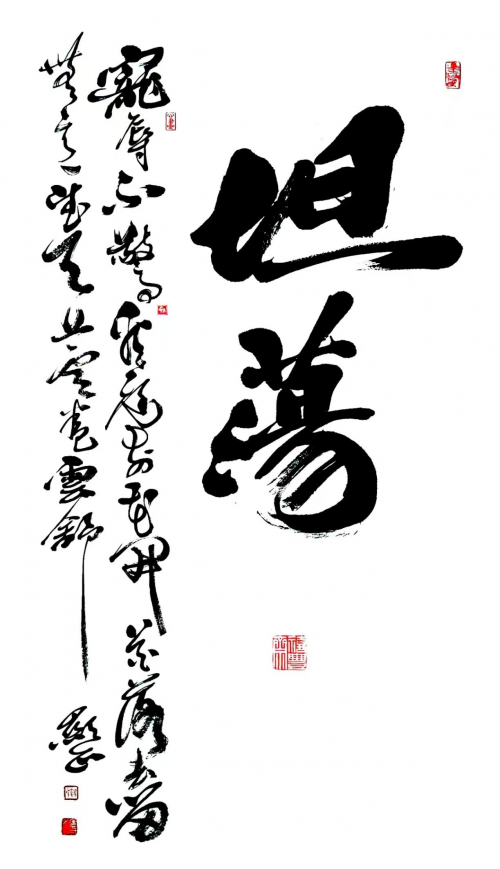 坦蕩
寵辱不驚看庭前花開花落去留
無意望天上雲卷雲舒